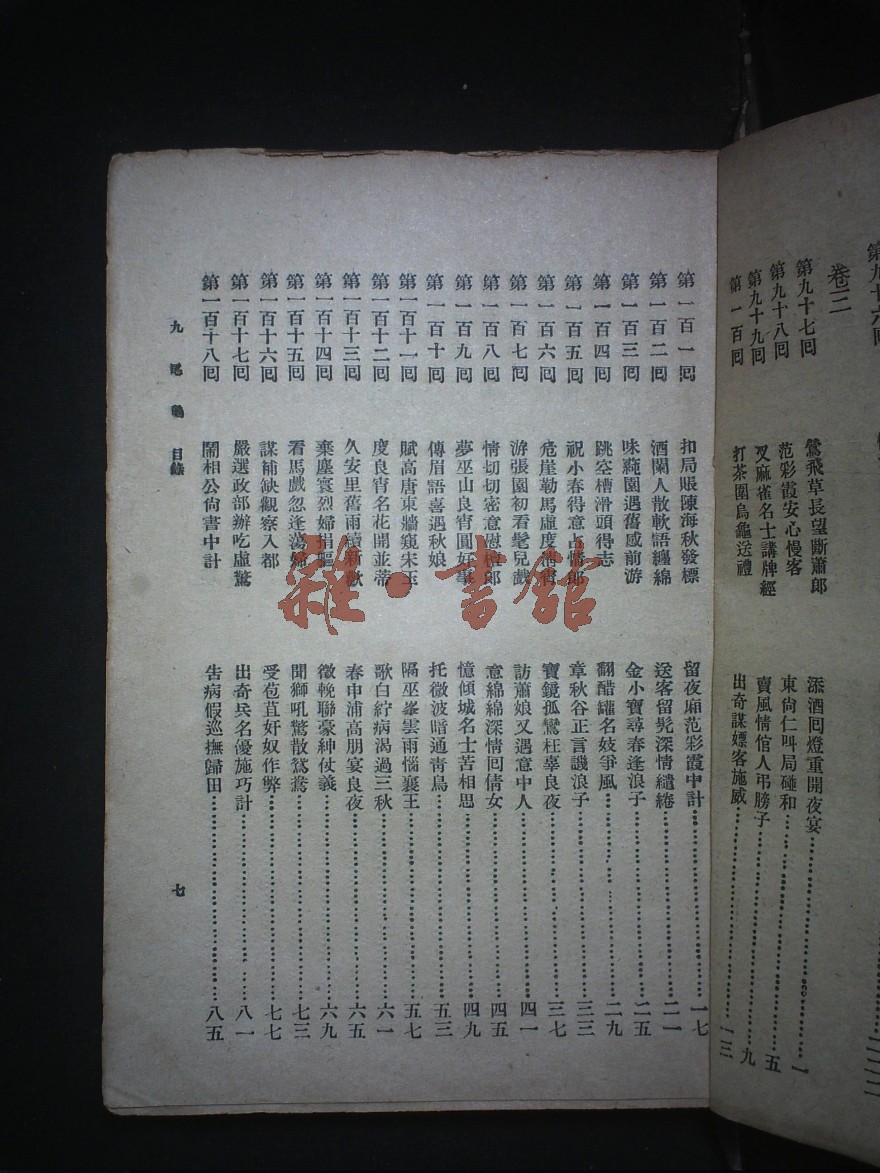 卷三
第九十七囘 鶯飛草長望斷蕭郎 添酒囘燈重開夜宴 一
第九十八囘 范彩霞安心慢客 東尙仁叫局碰和 五
第九十九囘 叉麻雀名士講牌經 賣風情倌人弔膀子 九
第一百囘 打茶圍烏龜送禮 出奇謀嫖客施威 一三
第一百一囘 扣局賬陳海秋發標 留夜廂范彩霞中計 一七
第一百二囘 酒闌人散軟語纏綿 送客留髠深情繾綣 二一
第一百三囘 味蒓園遇舊感前游 金小寶尋春逢浪子 二五
第一百四囘 跳空槽滑頭得志 翻醋罐名妓爭風 二九
第一百五囘 祝小春得意占情郎 章秋谷正言譏浪子 三三
第一百六囘 危崖勒馬虛度春宵 寶鏡孤鸞枉辜良夜 三七
第一百七囘 游張園初看髦兒戲 訪蕭娘又遇意中人 四一
第一百八囘 情切切密意慰檀郎 意綿綿深情囘倩女 四五
第一百九囘 夢巫山良宵圓好事 憶傾城名士苦相思 四九
第一百十囘 傳眉語喜遇秋娘 托微波暗通靑鳥 五三
第一百十一囘 賦高唐東牆窺宋玉 隔巫峯雲雨惱襄王 五七
第一百十二囘 度良宵名花開並蒂 歌白紵病渴過三秋 六一
第一百十三囘 久安里舊雨續新歡 春申浦高朋宴良夜 六五
第一百十四囘 棄塵寰烈婦捐軀 徵輓聯豪紳仗義 六九
第一百十五囘 看馬戲忽逢蕩婦 聞獅吼驚散鴛鴦 七三
第一百十六囘 謀補缺觀察入都 受苞苴奸奴作弊 七七
第一百十七囘 嚴選政部辦吃虛驚 出奇兵名優施巧計 八一
第一百十八囘 鬧相公尙書中計 吿病假巡撫歸田 八五
九尾龜 目錄 七
雜·書館